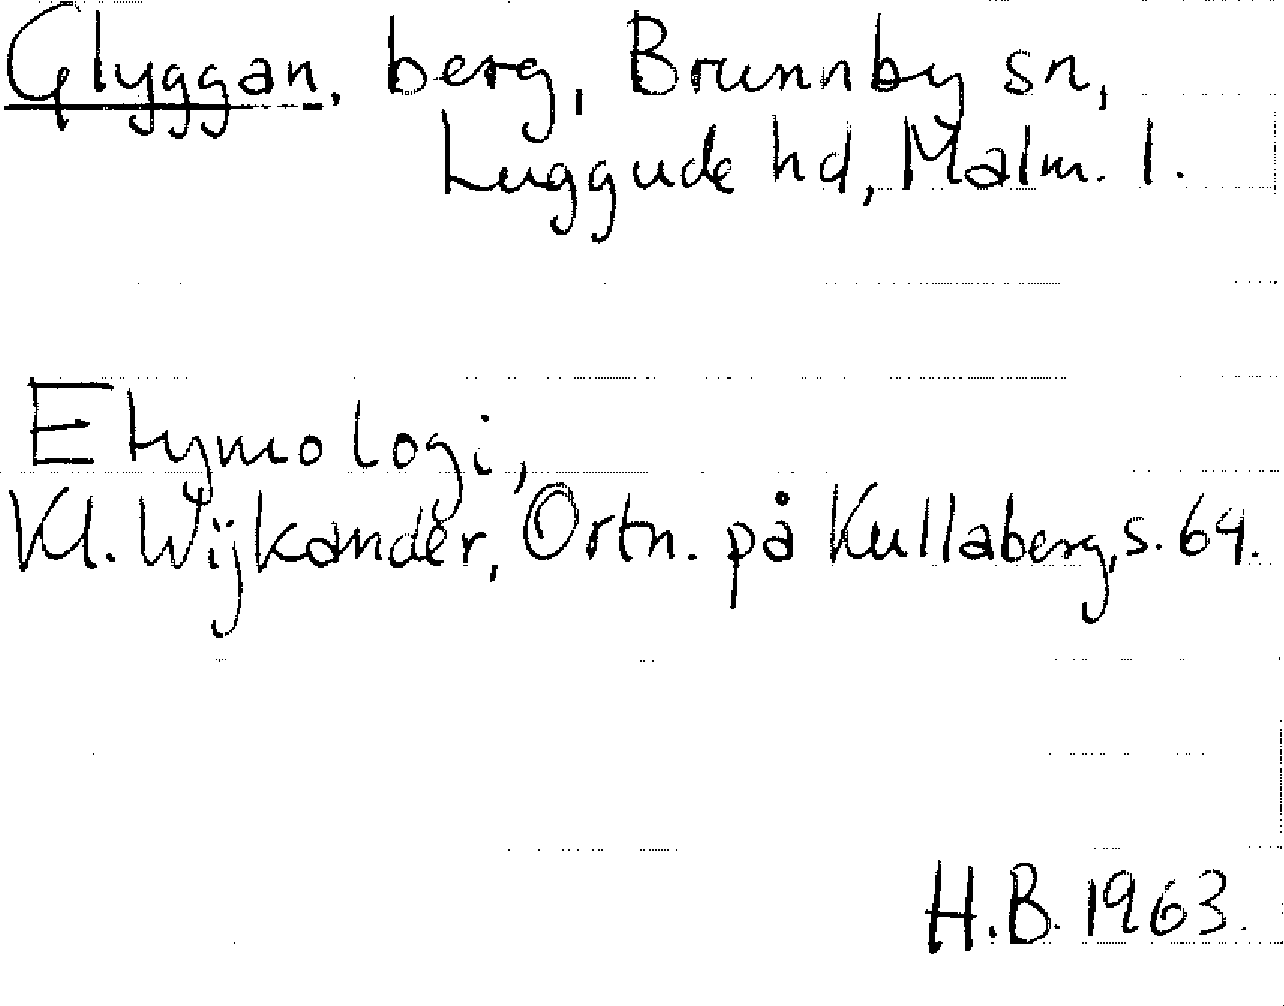 Glyggan, berg, Brunnby sn,
Luggude hd, Malm. l.
Etymologi,
Kl. Wijkander, Ortn. på Kullaberg, s. 64.
H.B. 1963.